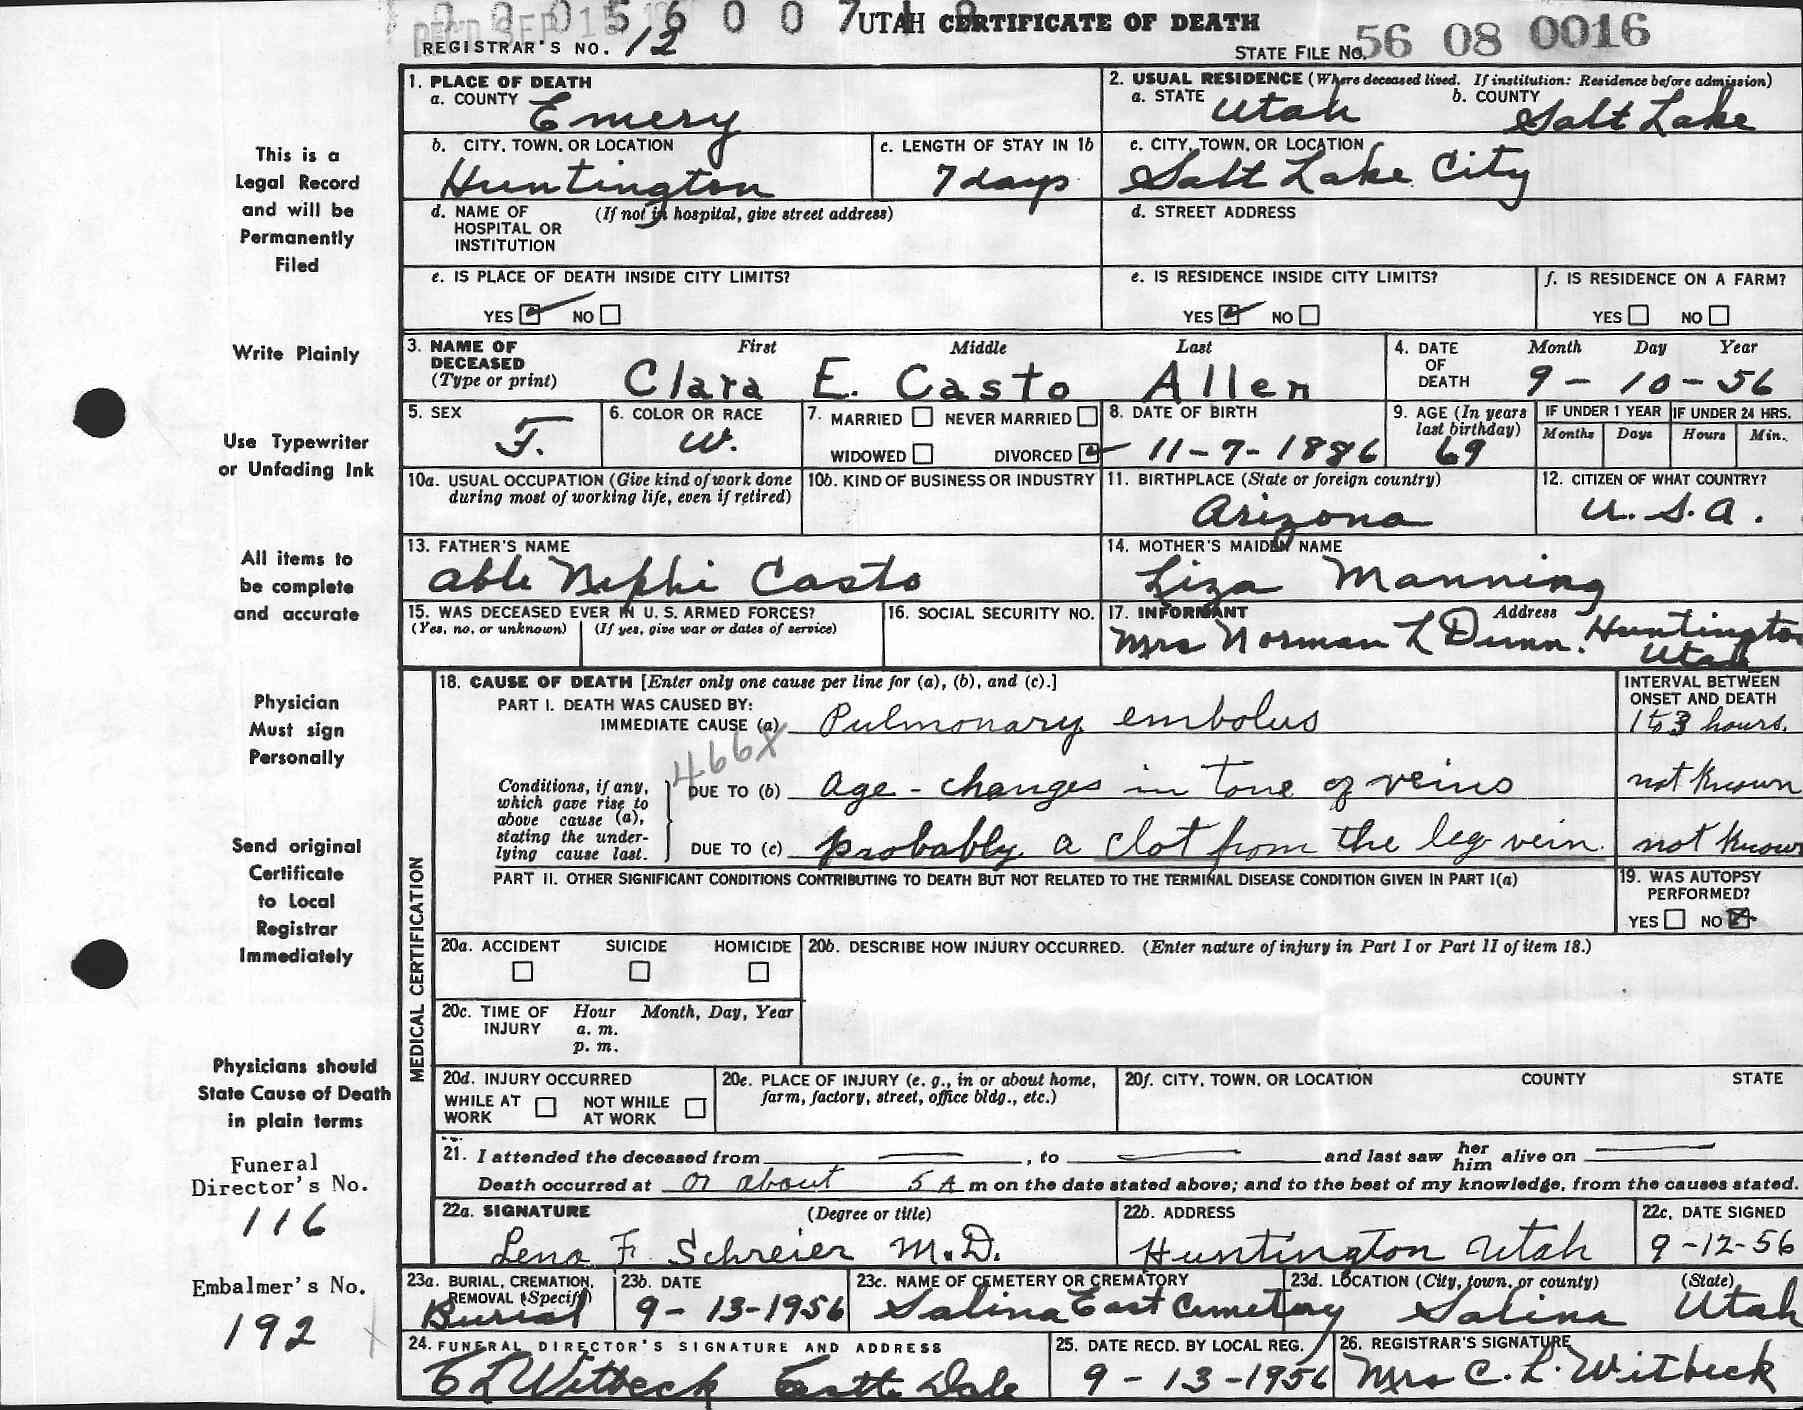 REC'D SEP 15 5 6 0 0 7 1 UTAH CERTIFICATE OF DEATH
REGISTRAR'S NO. 12
STATE FILE NO. 56 08 0016
1. PLACE OF DEATH
a. COUNTY Emery
2. USUAL RESIDENCE (Where deceased lived. If institution: Residence before admission)
a. STATE Utah b. COUNTY Salt Lake
b. CITY, TOWN, OR LOCATION Huntington
c. LENGTH OF STAY IN 1b 7 days
c. CITY, TOWN, OR LOCATION Salt Lake City
d. NAME OF HOSPITAL OR INSTITUTION (If not in hospital, give street address)
d. STREET ADDRESS
e. IS PLACE OF DEATH INSIDE CITY LIMITS?
YES NO
e. IS RESIDENCE INSIDE CITY LIMITS?
YES NO
f. IS RESIDENCE ON A FARM?
YES NO
3. NAME OF DECEASED (Type or print) First Middle Last
Clara E. Casto Allen
4. DATE OF DEATH Month Day Year
9 - 10 - 56
5. SEX F.
6. COLOR OR RACE W.
7. MARRIED NEVER MARRIED
WIDOWED DIVORCED
8. DATE OF BIRTH 11-7-1886
9. AGE (In years last birthday) 69
IF UNDER 1 YEAR Months Days
IF UNDER 24 HRS. Hours Min.
10a. USUAL OCCUPATION (Give kind of work done during most of working life, even if retired)
10b. KIND OF BUSINESS OR INDUSTRY
11. BIRTHPLACE (State or foreign country) Arizona
12. CITIZEN OF WHAT COUNTRY? U.S.A.
13. FATHER'S NAME
Able Nephi Casto
14. MOTHER'S MAIDEN NAME
Liza Manning
15. WAS DECEASED EVER IN U. S. ARMED FORCES?
(Yes, no, or unknown) (If yes, give war or dates of service)
16. SOCIAL SECURITY NO.
17. INFORMANT Address
Mrs Norman L Dunn. Huntington Utah
MEDICAL CERTIFICATION
18. CAUSE OF DEATH [Enter only one cause per line for (a), (b), and (c).]
PART I. DEATH WAS CAUSED BY:
IMMEDIATE CAUSE (a) Pulmonary embolus
INTERVAL BETWEEN ONSET AND DEATH
1 to 3 hours.
466X
Conditions, if any, which gave rise to above cause (a), stating the underlying cause last.
DUE TO (b) Age - changes in tone of veins not known
DUE TO (c) probably a clot from the leg vein. not known
PART II. OTHER SIGNIFICANT CONDITIONS CONTRIBUTING TO DEATH BUT NOT RELATED TO THE TERMINAL DISEASE CONDITION GIVEN IN PART I(a)
19. WAS AUTOPSY PERFORMED?
YES NO
20a. ACCIDENT SUICIDE HOMICIDE
20b. DESCRIBE HOW INJURY OCCURRED. (Enter nature of injury in Part I or Part II of item 18.)
20c. TIME OF INJURY Hour Month, Day, Year
a. m.
p. m.
20d. INJURY OCCURRED
WHILE AT WORK NOT WHILE AT WORK
20e. PLACE OF INJURY (e. g., in or about home, farm, factory, street, office bldg., etc.)
20f. CITY, TOWN, OR LOCATION COUNTY STATE
21. I attended the deceased from — , to — and last saw her him alive on —
Death occurred at or about 5 A m on the date stated above; and to the best of my knowledge, from the causes stated.
22a. SIGNATURE (Degree or title)
Lena F. Schreier M.D.
22b. ADDRESS
Huntington Utah
22c. DATE SIGNED
9-12-56
23a. BURIAL, CREMATION, REMOVAL (Specify)
Burial
23b. DATE
9 - 13-1956
23c. NAME OF CEMETERY OR CREMATORY
Salina East Cemetery
23d. LOCATION (City, town, or county) (State)
Salina Utah
24. FUNERAL DIRECTOR'S SIGNATURE AND ADDRESS
C L Witbeck Castle Dale
25. DATE RECD. BY LOCAL REG.
9 - 13 -1956
26. REGISTRAR'S SIGNATURE
Mrs C. L. Witbeck
This is a
Legal Record
and will be
Permanently
Filed
Write Plainly
Use Typewriter
or Unfading Ink
All items to
be complete
and accurate
Physician
Must sign
Personally
Send original
Certificate
to Local
Registrar
Immediately
Physicians should
State Cause of Death
in plain terms
Funeral
Director's No.
116
Embalmer's No.
192 X